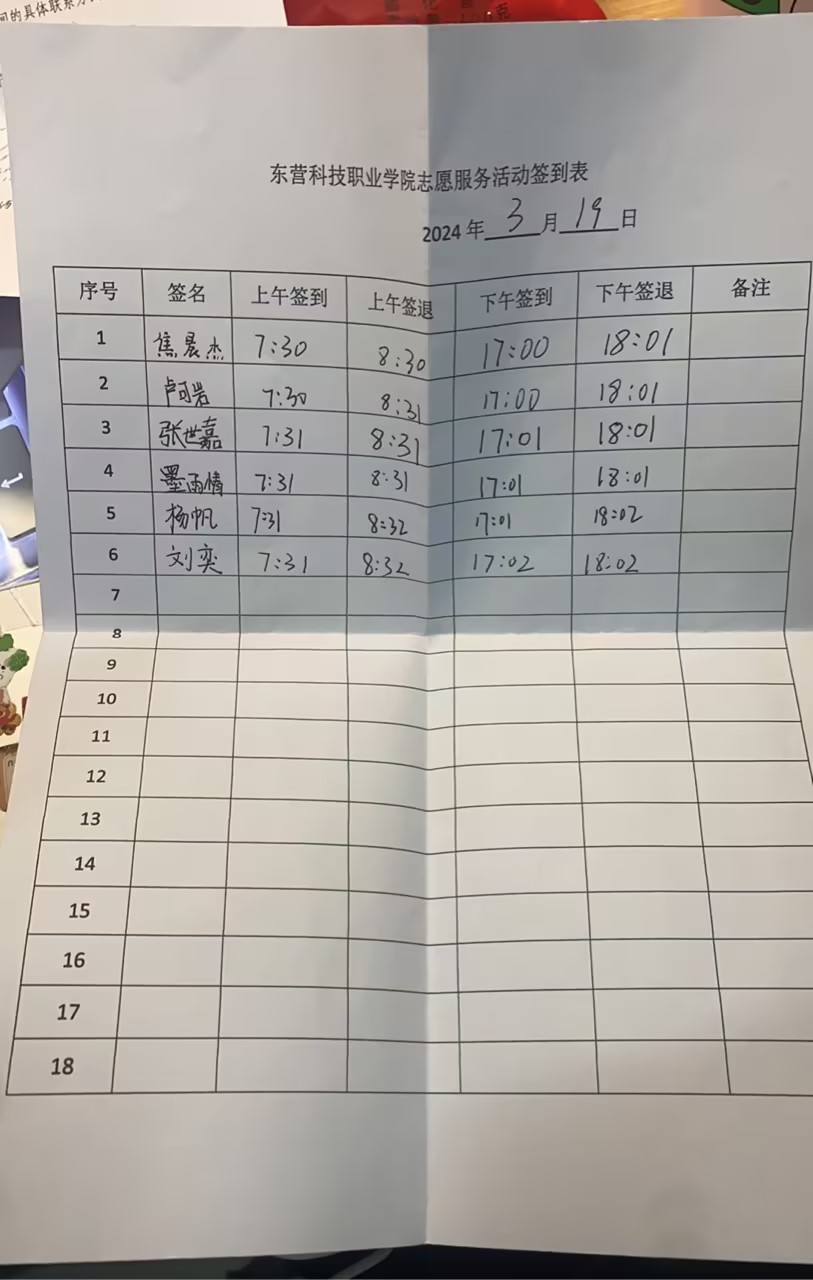 间的具体联系方
东营科技职业学院志愿服务活动签到表
2024 年 3 月 19 日
序号 签名 上午签到 上午签退 下午签到 下午签退 备注
1 焦晨杰 7:30 8:30 17:00 18:01
2 卢岩 7:30 8:31 17:00 18:01
3 张世嘉 7:31 8:31 17:01 18:01
4 墨雨情 7:31 8:31 17:01 18:01
5 杨帆 7:31 8:32 17:01 18:02
6 刘奕 7:31 8:32 17:02 18:02
7
8
9
10
11
12
13
14
15
16
17
18